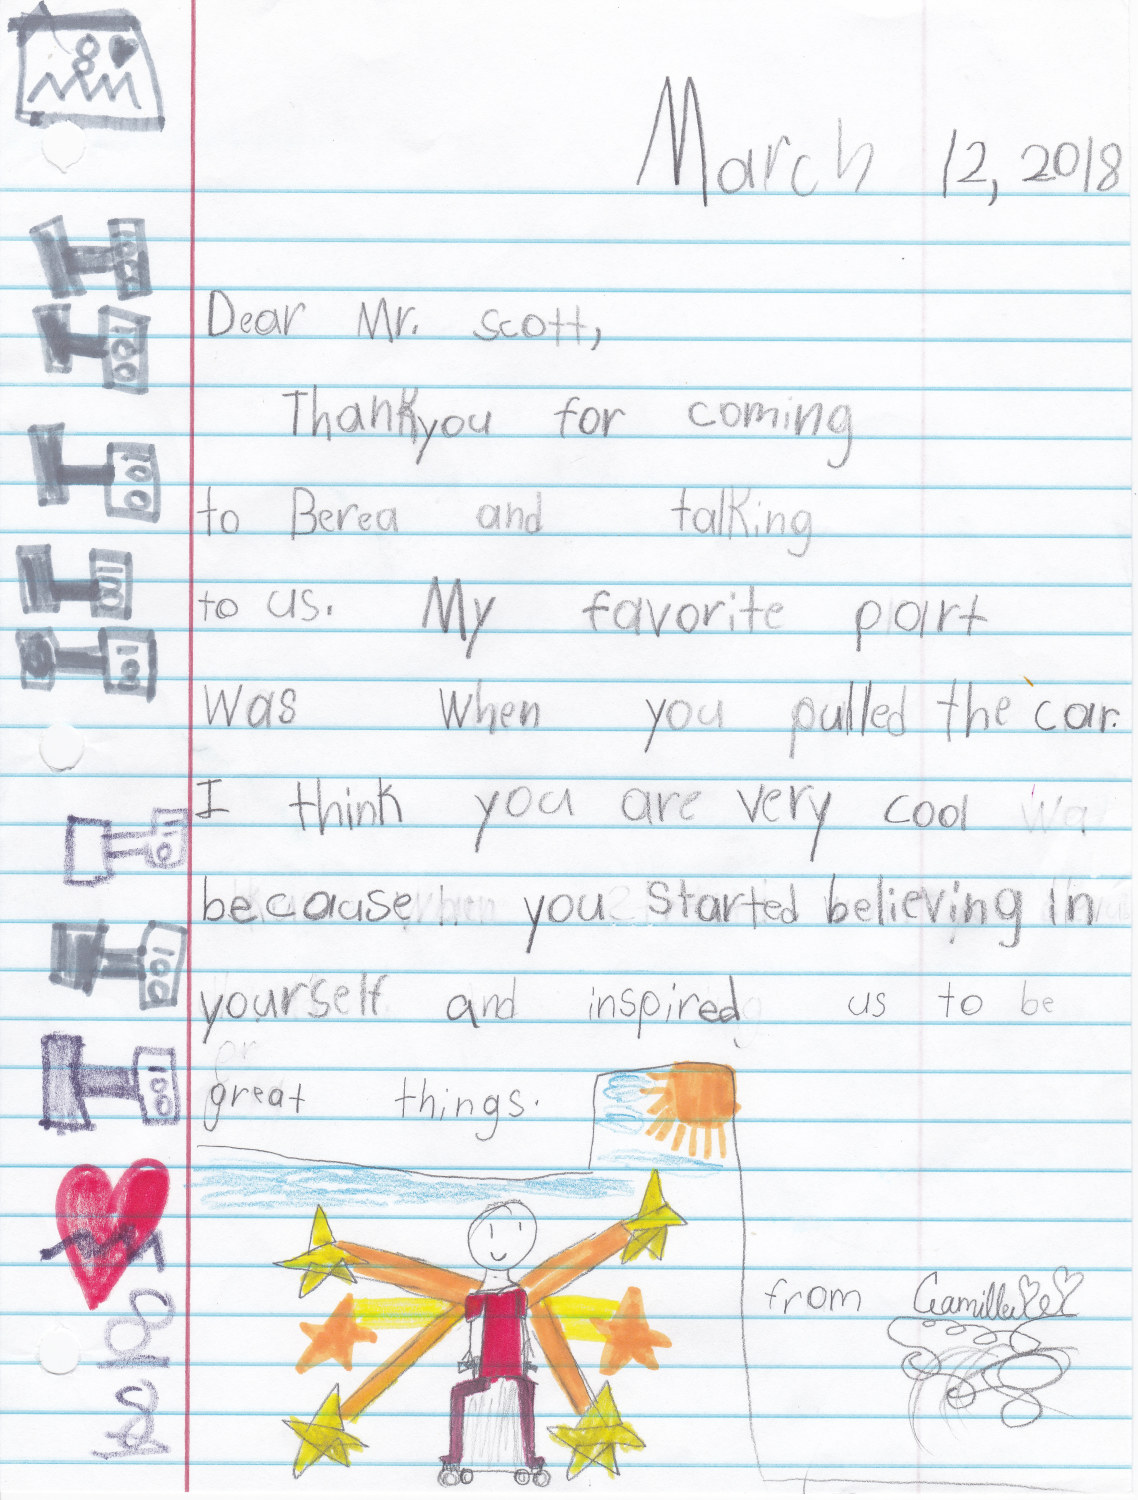 March 12, 2018
Dear Mr. scott,
Thankyou for coming
to Berea and talking
to us. My favorite part
was when you pulled the car.
I think you are very cool
because you started believing in
yourself and inspired us to be
great things.
from Camille
8
100
100
100
100
101
10
100
100